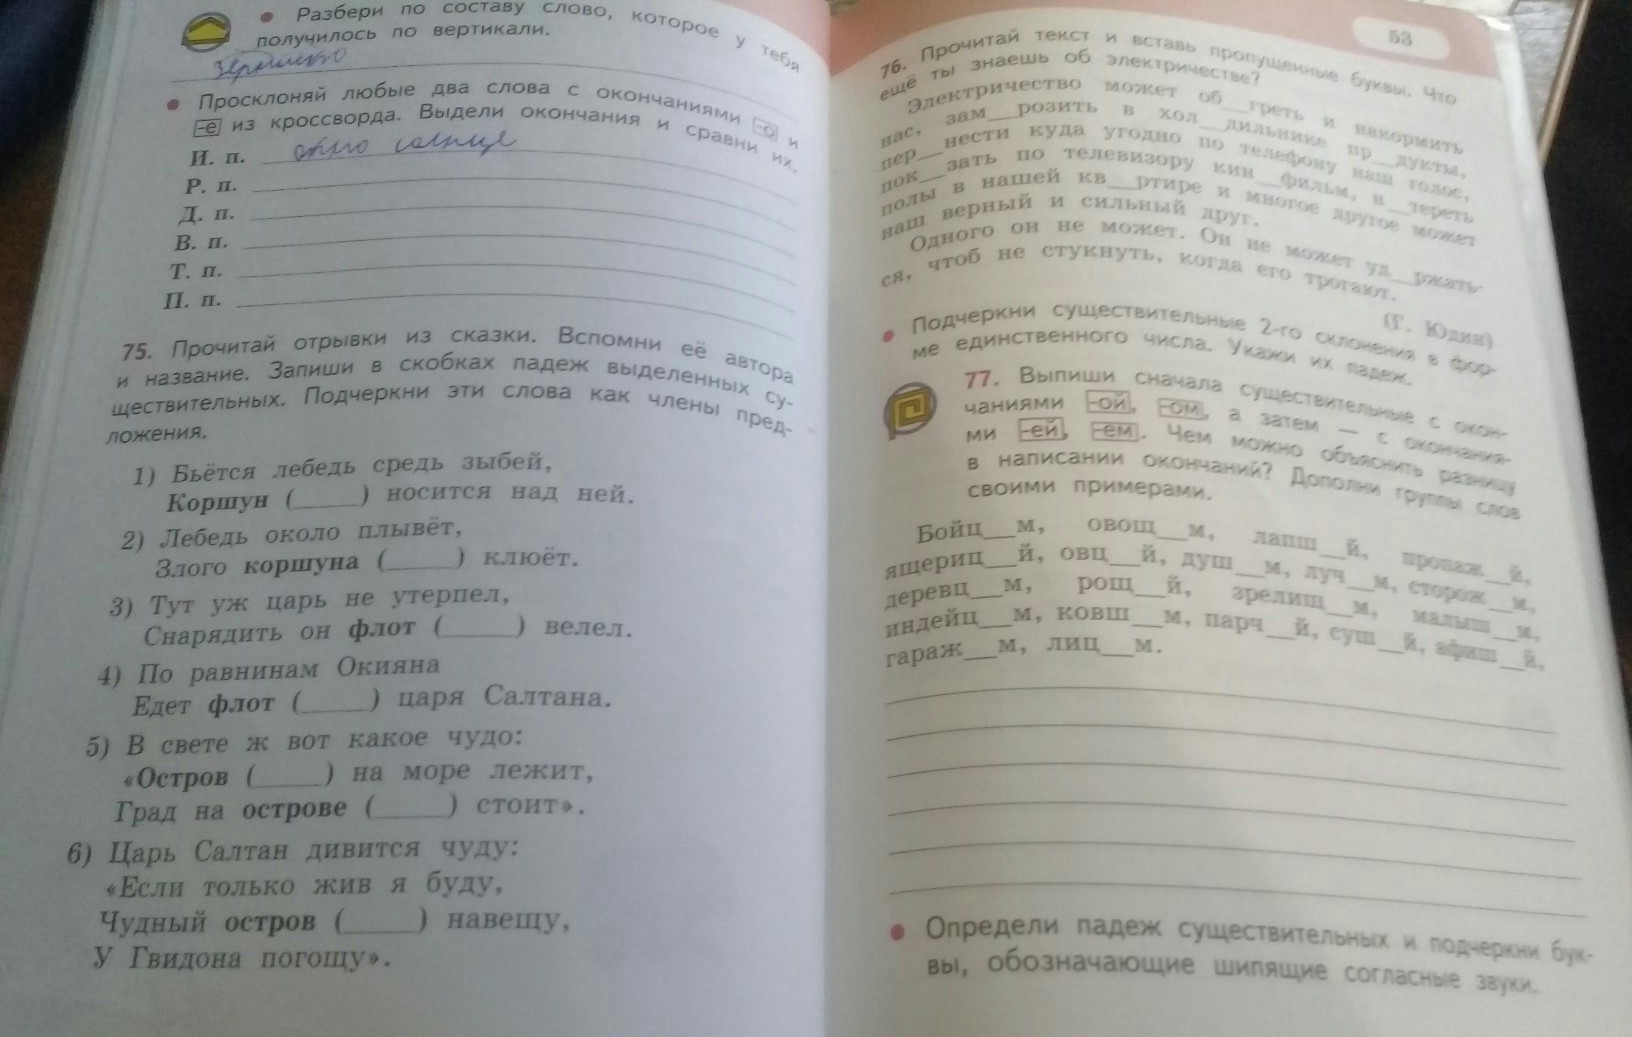 • Разбери по составу слово, которое у тебя
получилось по вертикали.
• Просклоняй любые два слова с окончаниями -о и
-е из кроссворда. Выдели окончания и сравни их.
И. п. окно солнце
Р. п.
Д. п.
В. п.
Т. п.
П. п.
75. Прочитай отрывки из сказки. Вспомни её автора
и название. Запиши в скобках падеж выделенных су-
ществительных. Подчеркни эти слова как члены пред-
ложения.
1) Бьётся лебедь средь зыбей,
Коршун (_____) носится над ней.
2) Лебедь около плывёт,
Злого коршуна (_____) клюёт.
3) Тут уж царь не утерпел,
Снарядить он флот (_____) велел.
4) По равнинам Окияна
Едет флот (_____) царя Салтана.
5) В свете ж вот какое чудо:
«Остров (_____) на море лежит,
Град на острове (_____) стоит».
6) Царь Салтан дивится чуду:
«Если только жив я буду,
Чудный остров (_____) навещу,
У Гвидона погощу».
53
76. Прочитай текст и вставь пропущенные буквы. Что
ещё ты знаешь об электричестве?
Электричество может об__греть и накормить
нас, зам__розить в хол__дильнике пр__дукты,
пер__нести куда угодно по телефону наш голос,
пок__зать по телевизору кин__фильм, н__тереть
полы в нашей кв__ртире и многое другое может
наш верный и сильный друг.
Одного он не может. Он не может уд__ржать-
ся, чтоб не стукнуть, когда его трогают.
(Г. Юдин)
• Подчеркни существительные 2-го склонения в фор-
ме единственного числа. Укажи их падеж.
77. Выпиши сначала существительные с окон-
чаниями -ой, -ом, а затем — с окончания-
ми -ей, -ем. Чем можно объяснить разницу
в написании окончаний? Дополни группы слов
своими примерами.
Бойц__м, овощ__м, лапш__й, пропаж__й,
ящериц__й, овц__й, душ__м, луч__м, сторож__м,
деревц__м, рощ__й, зрелищ__м, малыш__м,
индейц__м, ковш__м, парч__й, суш__й, афиш__й,
гараж__м, лиц__м.
• Определи падеж существительных и подчеркни бук-
вы, обозначающие шипящие согласные звуки.